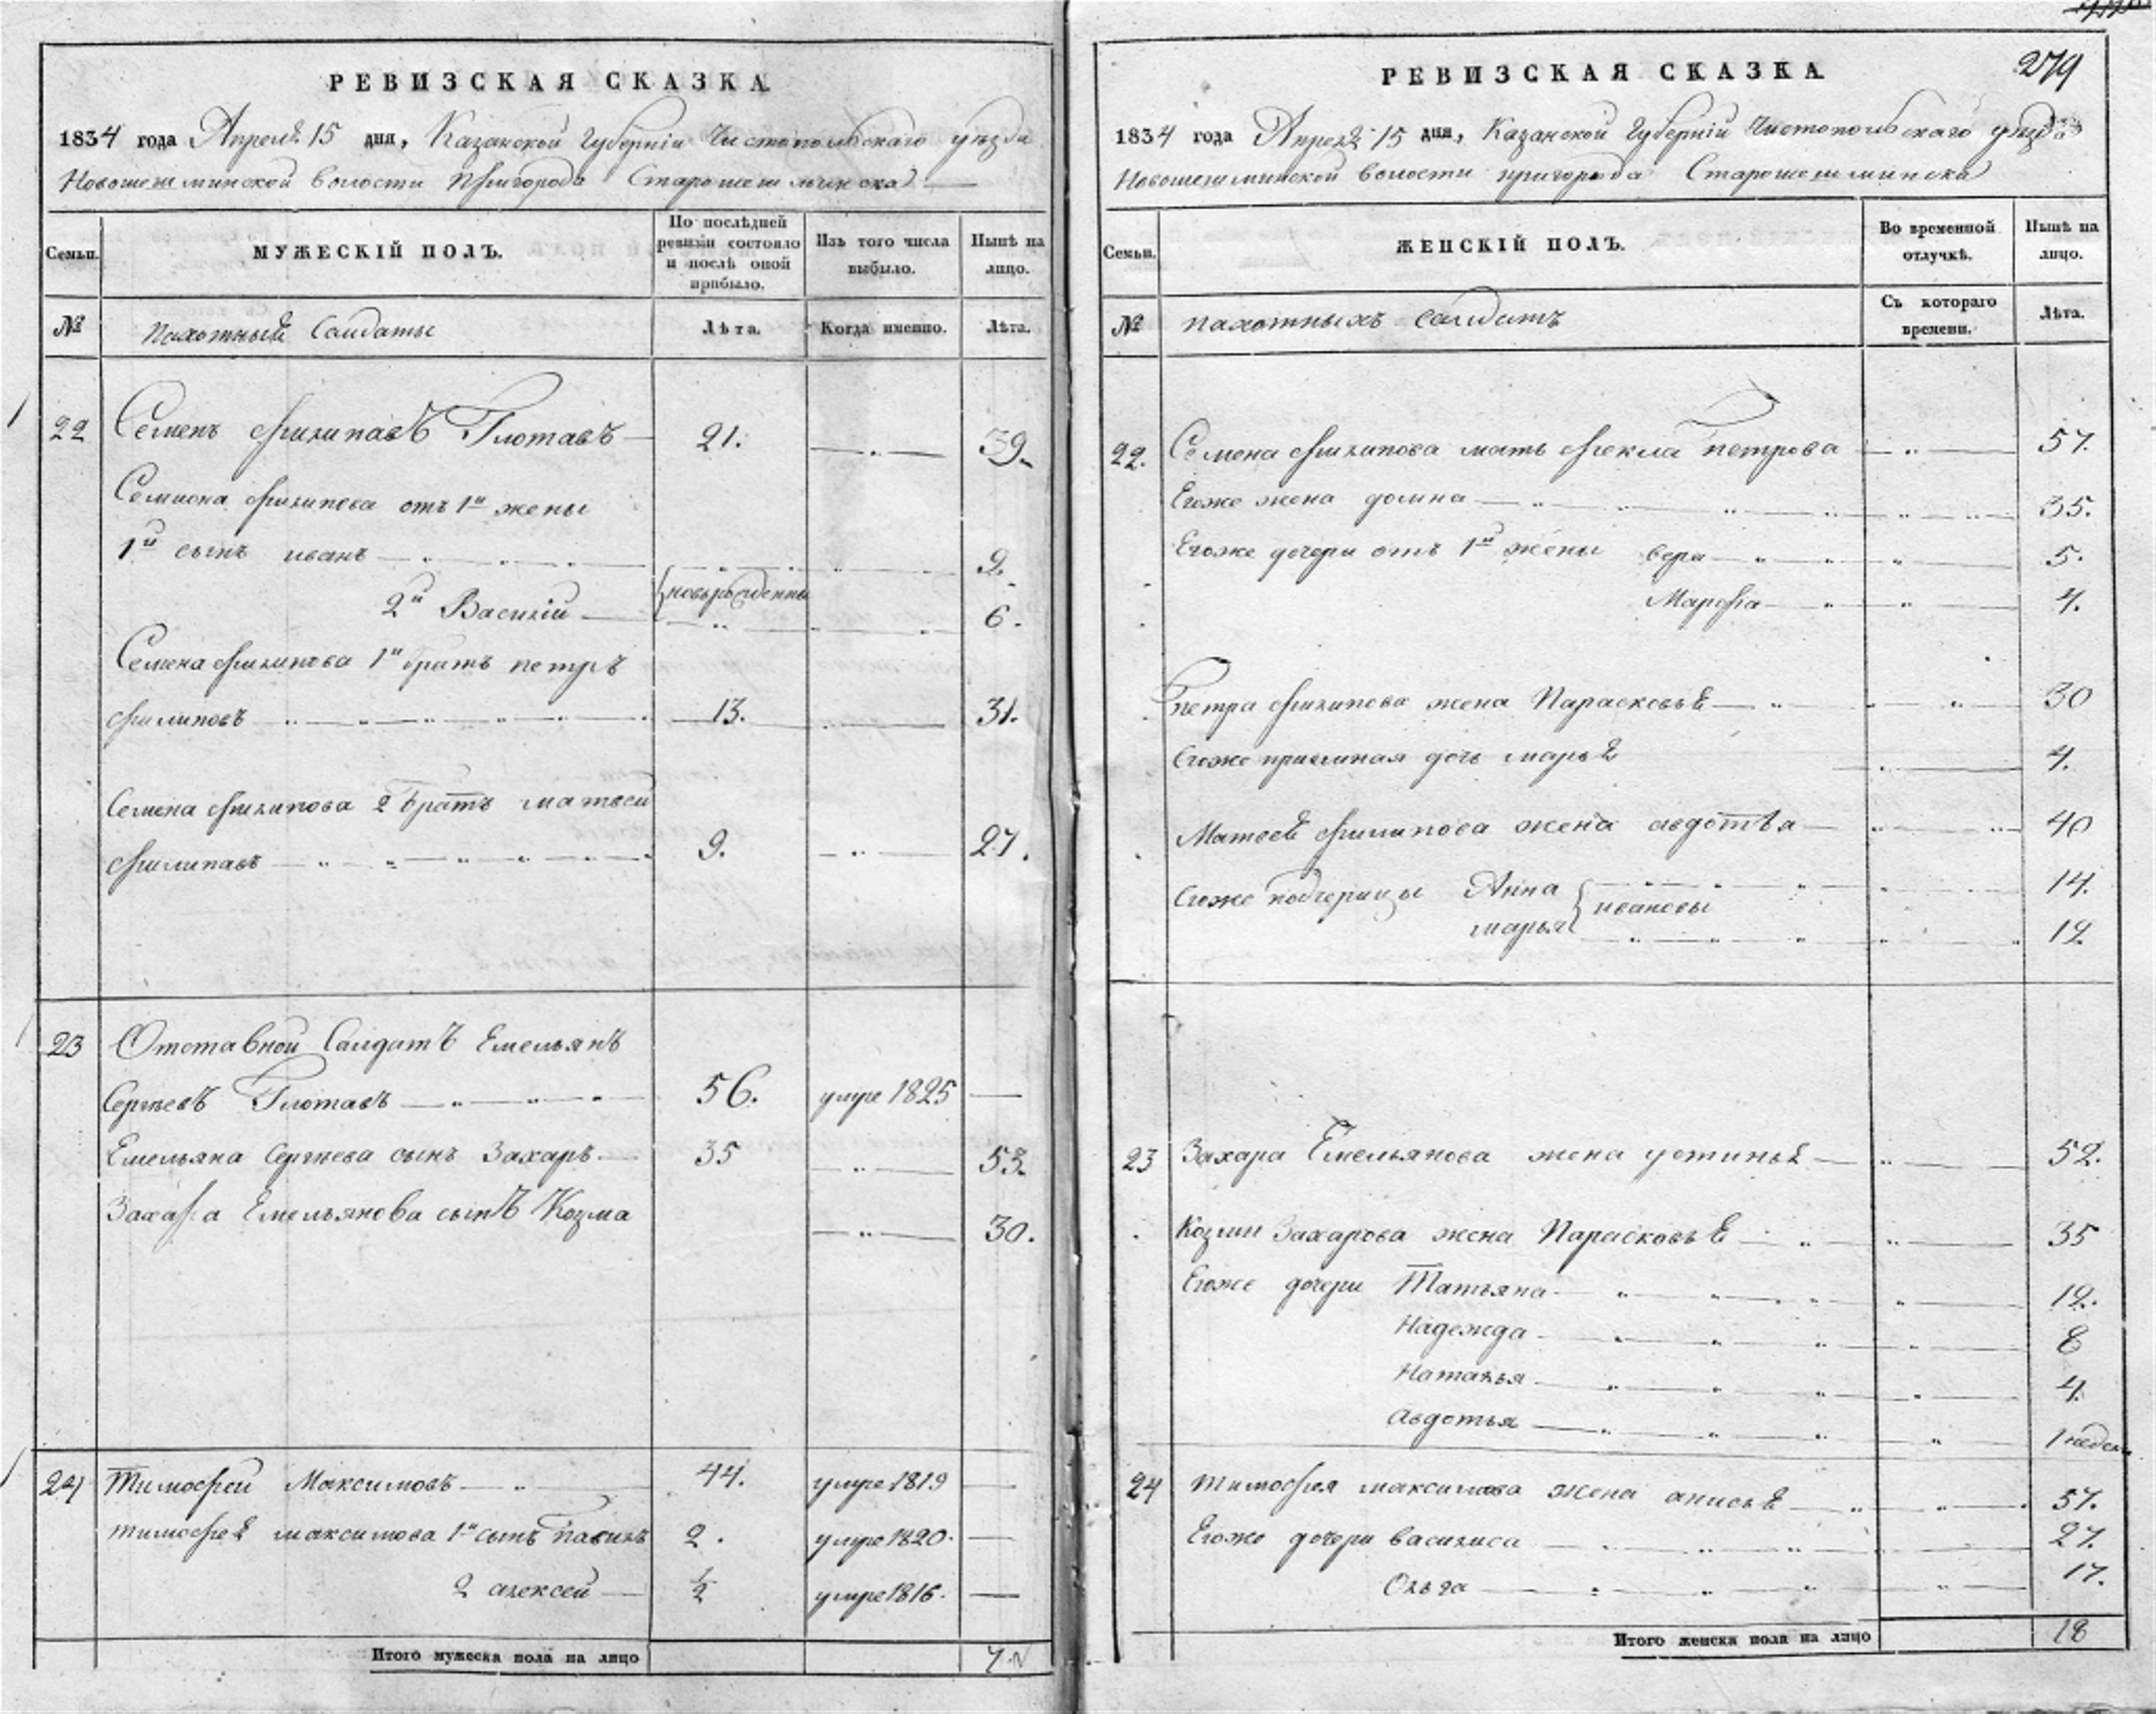 РЕВИЗСКАЯ СКАЗКА
1834 года Апреля 15 дня, Казанской Губернiи Чистопольскаго уѣзда
Новошешминской волости Пригорода Старошешминска
Семьи.
МУЖЕСКІЙ ПОЛЪ.
По послѣдней ревизіи состояло и послѣ оной прибыло.
Изъ того числа выбыло.
Нынѣ на лицо.
№
Пахотныя Салдаты
Лѣта.
Когда именно.
Лѣта.
22 Семенъ Филипавъ Глотавъ 21. 39.
Семиона Филипова отъ 1й жены
1й сынъ иванъ 9.
2й Василiй новырожденны 6.
Семена Филипова 1й братъ петръ
Филиповъ 13. 31.
Семена Филипова 2 братъ матвей
Филипавъ 9. 27.
23 Отставной Салдатъ Емельянъ
Сергѣевъ Глотавъ 56. умре 1825
Емельяна Сергѣева сынъ Захаръ 35 53.
Захара Емельянова сынъ Козма 30.
24 Тимофей Максимовъ 44. умре 1819
тимофея максимова 1й сынъ Павилъ 2. умре 1820.
2 алексей ½ умре 1816.
Итого мужеска пола на лицо 7.
279
РЕВИЗСКАЯ СКАЗКА
1834 года Апреля 15 дня, Казанской Губернiи Чистопольскаго уѣзда
Новошешминской волости пригорода Старошешминска
Семьи.
ЖЕНСКІЙ ПОЛЪ.
Во временной отлучкѣ.
Нынѣ на лицо.
№
пахотныхъ Салдатъ
Съ котораго времени.
Лѣта.
22. Семена Филипова мать Фекла петрова 57.
Егоже жена домна 35.
Егоже дочери отъ 1й жены вера 5.
Марфа 4.
Петра Филипова жена Парасковья 30
Егоже приемная дочь марья 4.
Матвея Филипова жена авдотья 40
Егоже подчерицы Анна 14.
ивановы
марья 12.
23 Захара Емельянова жена устинья 52.
Козмы Захарова жена Парасковья 35
Егоже дочери Татьяна 12.
Надежда 8
Наталья 4.
Авдотья 1 недел
24 Тимофея максимова жена анисья 57.
Егоже дочери василиса 27.
Ольга 17.
Итого женска пола на лицо 18